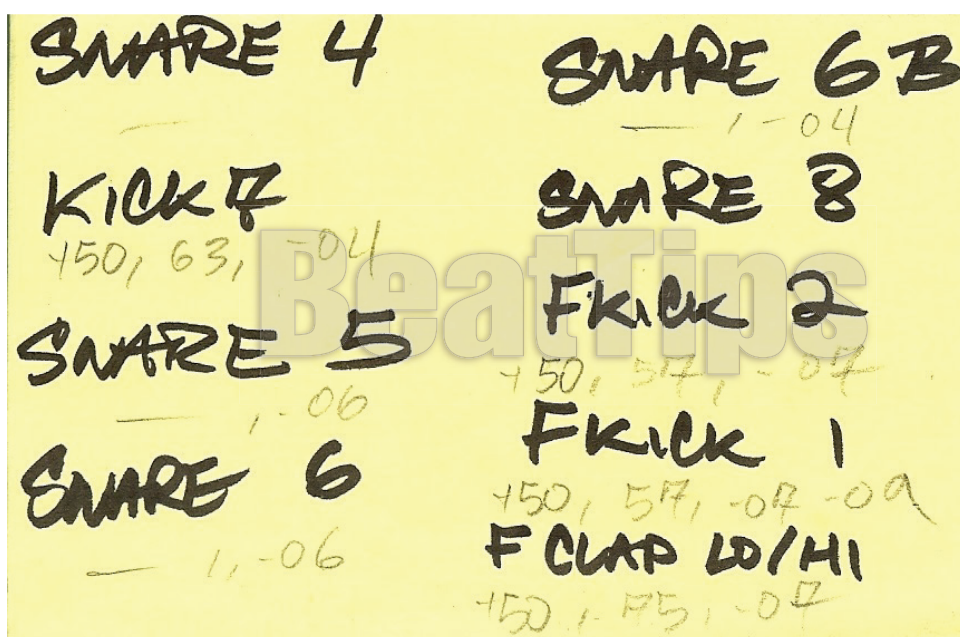 SNARE 4
—
KICK 7
+50, 63, -04
SNARE 5
— , -06
SNARE 6
— , , -06
SNARE 6B
— , -04
SNARE 8
FKICK 2
+50, 57, -07
FKICK 1
+50, 57, -07 -09
F CLAP LO/HI
+50, -75, -07
BeatTips